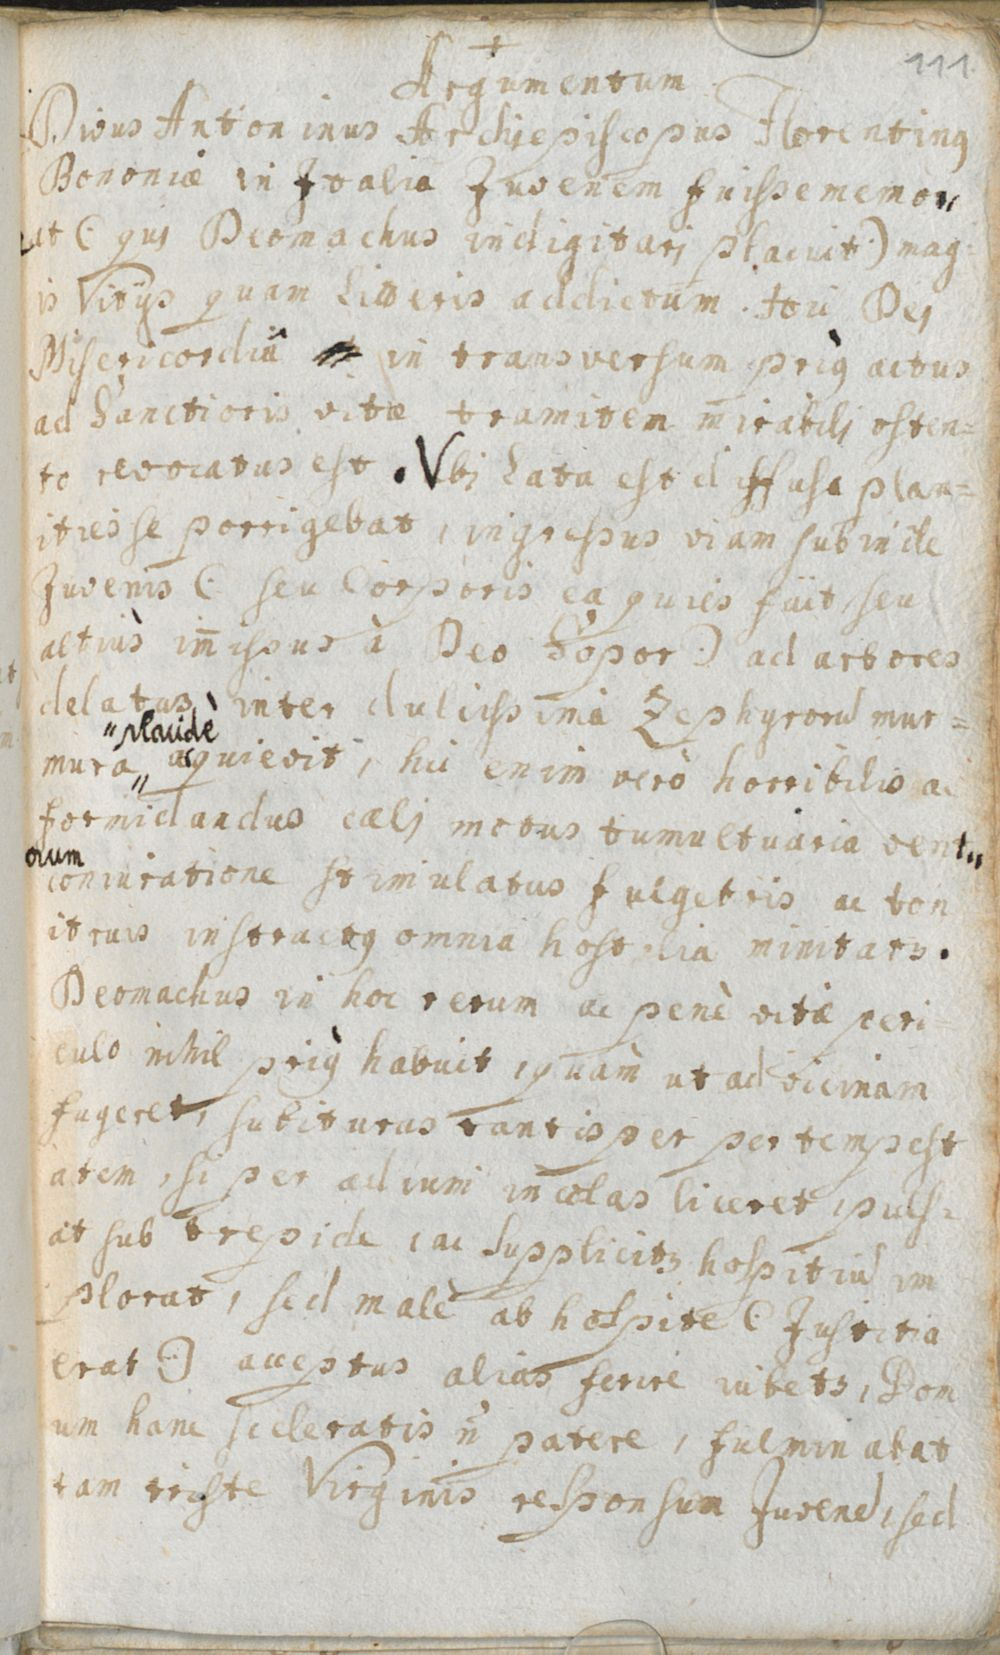 +
111
Argumentum
Divus Antoninus Archiepiscopus Florentinꝰ
Bononiæ in Italia Juvenem fuisse memor„
at (: qui Deomachus indigitari placuit :) mag=
is Vitijs quam litteris addictum.
Dei
Misericordiâ in transversum priꝰ actus
ad Sanctioris vitæ tramitem mirabili osten=
to revocatus est. Ubi Lata est diffusa plan=
ities se porrigebat, ingressus viam subinde
Juvenis (: seu Corporis ea quies fuit, seu
altiùs im̄issus à Deo Sopor :) ad arbores
delatus, inter dulcissima Zephyrorū mur=
„placidè
mura„ acquievit, hic enim verò horribilis ac
formidandus cæli motus tumultuaria vent„
orum
coniuratione stimulatus fulgetris ac ton
itruis instructꝰ omnia hostilia minitatꝛ.
Deomachus in hoc rerum ac penè vitæ peri=
culo nihil priꝰ habuit, quàm ut ad vicinam
fugeret, subiturus tantisper per tempest
atem, si per ædium incolas liceret, puls=
at sub trepide, ac suppliciter hospitiū im
plorat, sed malè ab hospite (: Justitia
erat :) acceptus alias ferire iubetꝛ, Dom
um hanc sceleratis n̄ patere, fulminabat
tam triste Virginis responsum Juvenē, sed